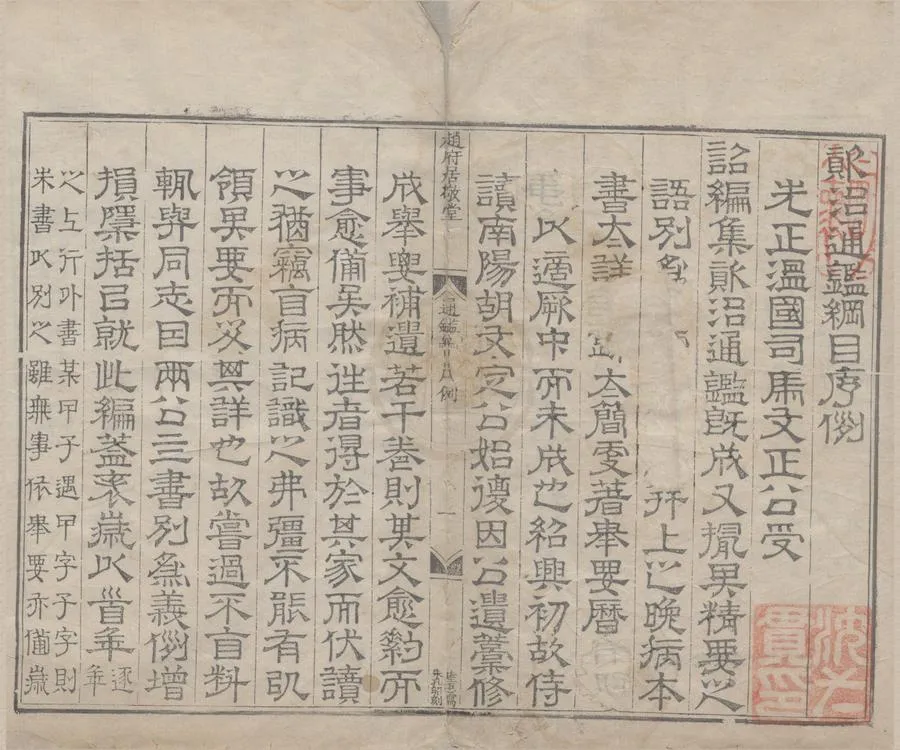 資治通鑑綱目序例
先正溫國司馬文正公受
詔編集資治通鑑既成又撮其精要之
語別 幷上之晚病本
書太詳 太簡更著舉要曆
以適厥中而未成也紹興初故侍
讀南陽胡文定公始復因公遺藁修
趙府居敬堂
通鑑 例
一
成舉要補遺若干卷則其文愈約而
事愈備矣然往者得於其家而伏讀
之猶竊自病記識之弗彊不能有以
領其要而及其詳也故嘗過不自料
輒與同志因兩公三書別爲義例增
損檃括以就此編蓋表歲以首年逐年
之上行外書某甲子遇甲字子字則
朱書以別之雖無事依舉要亦備歲